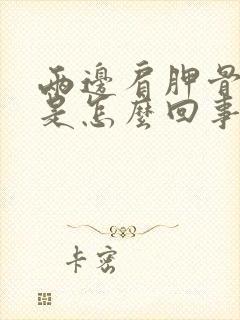 兩邊肩胛骨
是怎麼回事
卡密